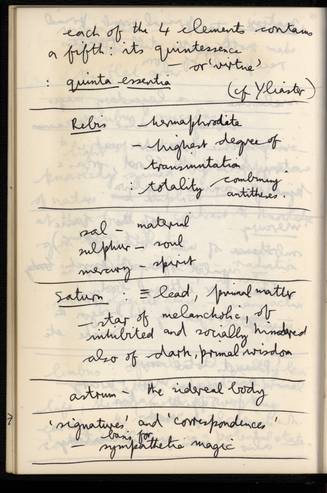 each of the 4 elements contains
a fifth: its quintessence
— or 'virtue'
: quinta essentia (cf Yliaster)
Rebis — hermaphrodite
— highest degree of
transmutation
: totality combining
antitheses.
sal — material
sulphur — soul
mercury — spirit
Saturn : ≡ lead, primal matter
— star of melancholic, of
inhibited and socially hindered
also of dark, primal wisdom
astrum : the sidereal body
'signatures' and 'correspondences'
basis for
— sympathetic magic